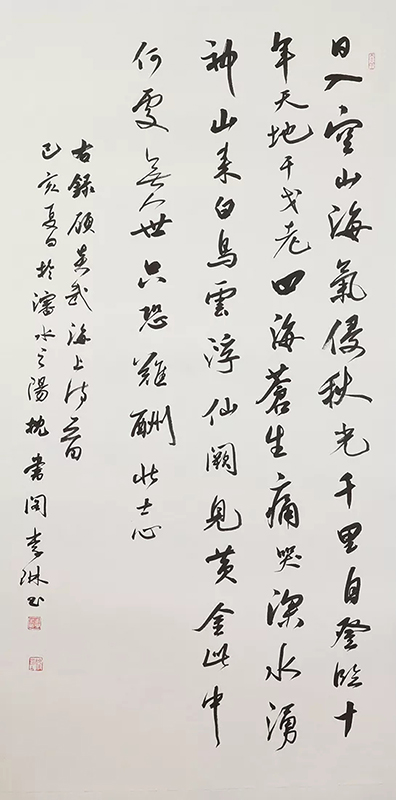 日入空山海氣侵秋光千里自登臨十
年天地干戈老四海蒼生痛哭深水湧
神山来白鳥雲浮仙闕見黄金此中
何處無人世只恐難酬壯士心
右錄顧炎武海上詩一首
己亥夏日於瀋水之陽枕書閣李琳書